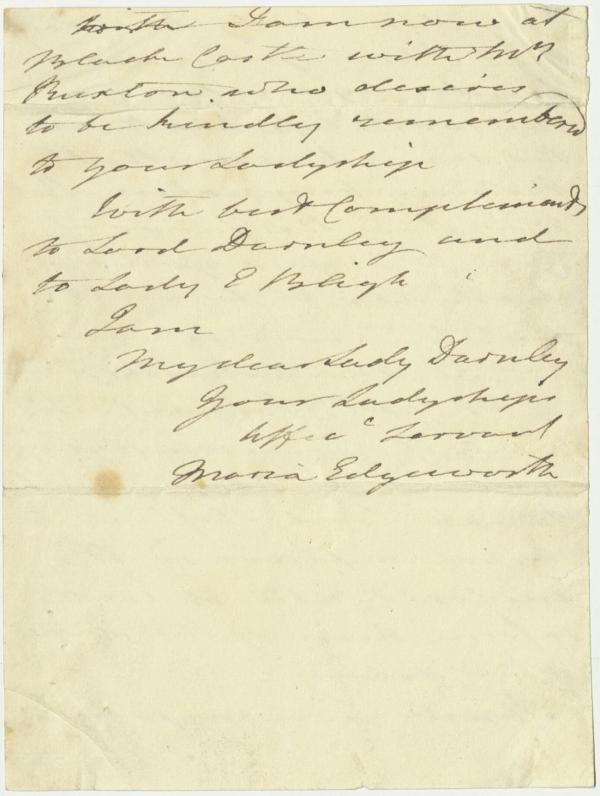 I am now at
Black Castle with Mrs
Ruxton who desires
to be kindly remembered
to your Ladyship
With best Compliments
to Lord Darnley and
to Lady E Bligh
I am
My dear Lady Darnley
Your Ladyships
Affec Servant
Maria Edgeworth